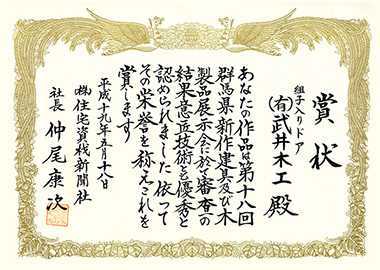 賞状
組子入りドア
(有)武井木工殿
あなたの作品は第十八回
群馬県新作建具及び木
製品展示会に於て審査の
結果意匠技術とも優秀と
認められました依って
その栄誉を称えこれを
賞します
平成十九年五月十八日
㈱住宅資材新聞社
社長 仲尾康次